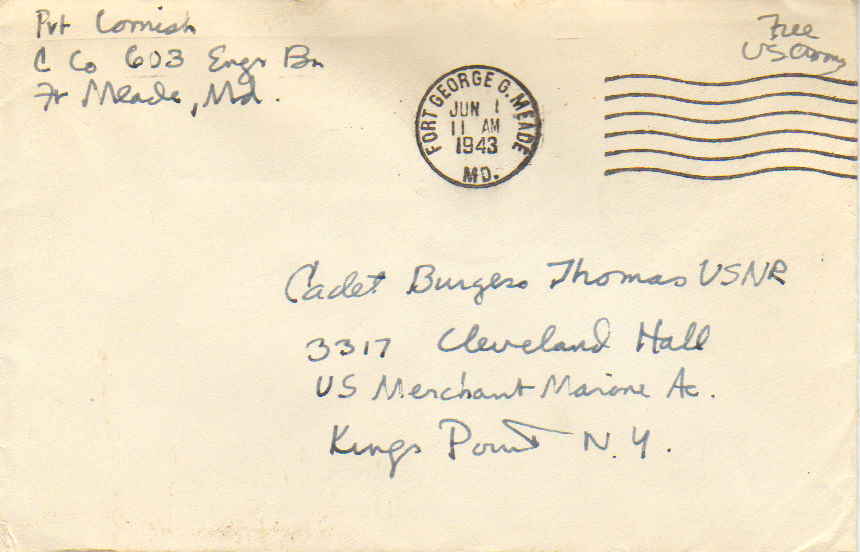 Pvt Cornish
C Co 603 Engr Bn
Ft Meade, Md.
Free
US Army
FORT GEORGE G. MEADE
JUN 1
11 AM
1943
MD.
Cadet Burgess Thomas USNR
3317 Cleveland Hall
US Merchant Marine Ac.
Kings Point N.Y.